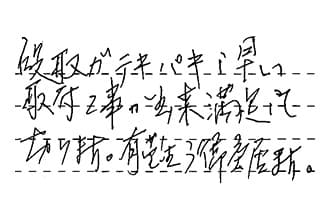 段取がテキパキし早い
取付工事が出来満足して
おります。有難う御座居ます。